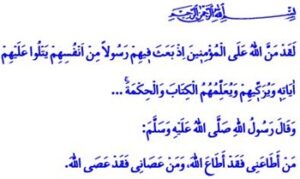 بِسْمِ اللهِ الرَّحْمٰنِ الرَّحِيمِ
لَقَدْ مَنَّ اللهُ عَلَى الْمُؤْمِنِينَ إِذْ بَعَثَ فِيهِمْ رَسُولاً مِنْ أَنْفُسِهِمْ يَتْلُوا عَلَيْهِمْ
أٰيَاتِهِ وَيُزَكِّيهِمْ وَيُعَلِّمُهُمُ الْكِتَابَ وَالْحِكْمَةَ ...
وَقَالَ رَسُولُ اللهِ صَلَّى اللهُ عَلَيْهِ وَسَلَّمَ:
مَنْ أَطَاعَنِي فَقَدْ أَطَاعَ اللهَ، وَمَنْ عَصَانِي فَقَدْ عَصَى اللهَ.